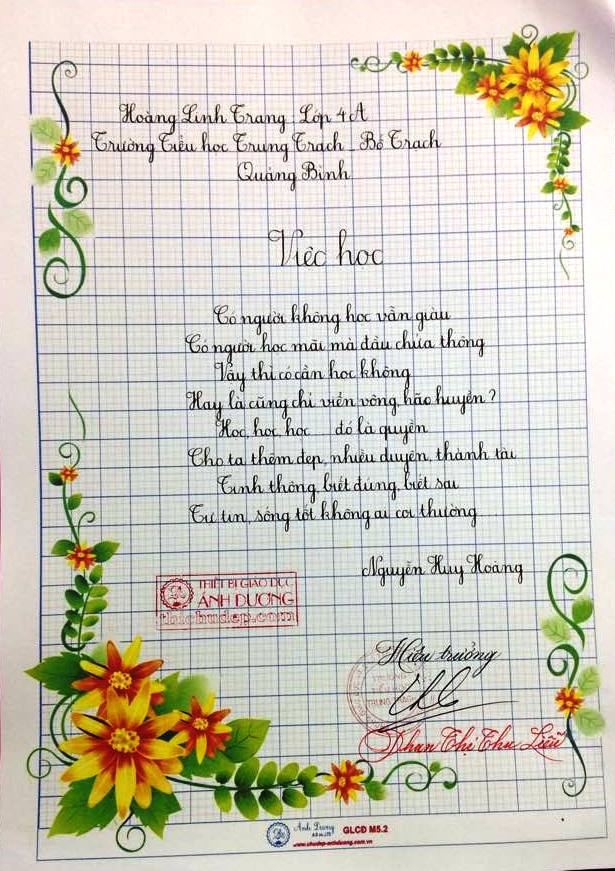 Hoàng Linh Trang. Lớp 4A
Trường Tiểu học Trung Trạch - Bố Trạch
Quảng Bình
Việc học
Có người không học vẫn giàu
Có người học mãi mà đầu chửa thông
Vậy thì có cần học không
Hay là cũng chỉ viển vông, hão huyền?
Học, học, học ... đó là quyền
Cho ta thêm đẹp, nhiều duyên, thành tài
Tinh thông, biết đúng, biết sai
Tự tin, sống tốt không ai coi thường.
Nguyễn Huy Hoàng
THIẾT BỊ GIÁO DỤC
ÁNH DƯƠNG
thichudep.com
Hiệu trưởng
TRƯỜNG
TRUNG TRẠCH
Phan Thị Thu Liễu
Anh Duong
GLCD M5.2
www.chudep-anhduong.com.vn